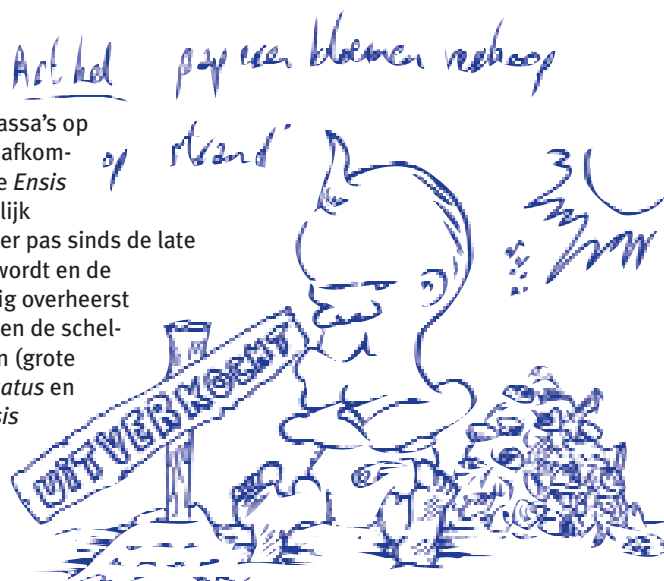 Artikel papieren bloemen verkoop
op strand
assa's op
afkom-
e Ensis
lijk
er pas sinds de late
wordt en de
ig overheerst
en de schel-
n (grote
atus en
sis
UITVERKOCHT